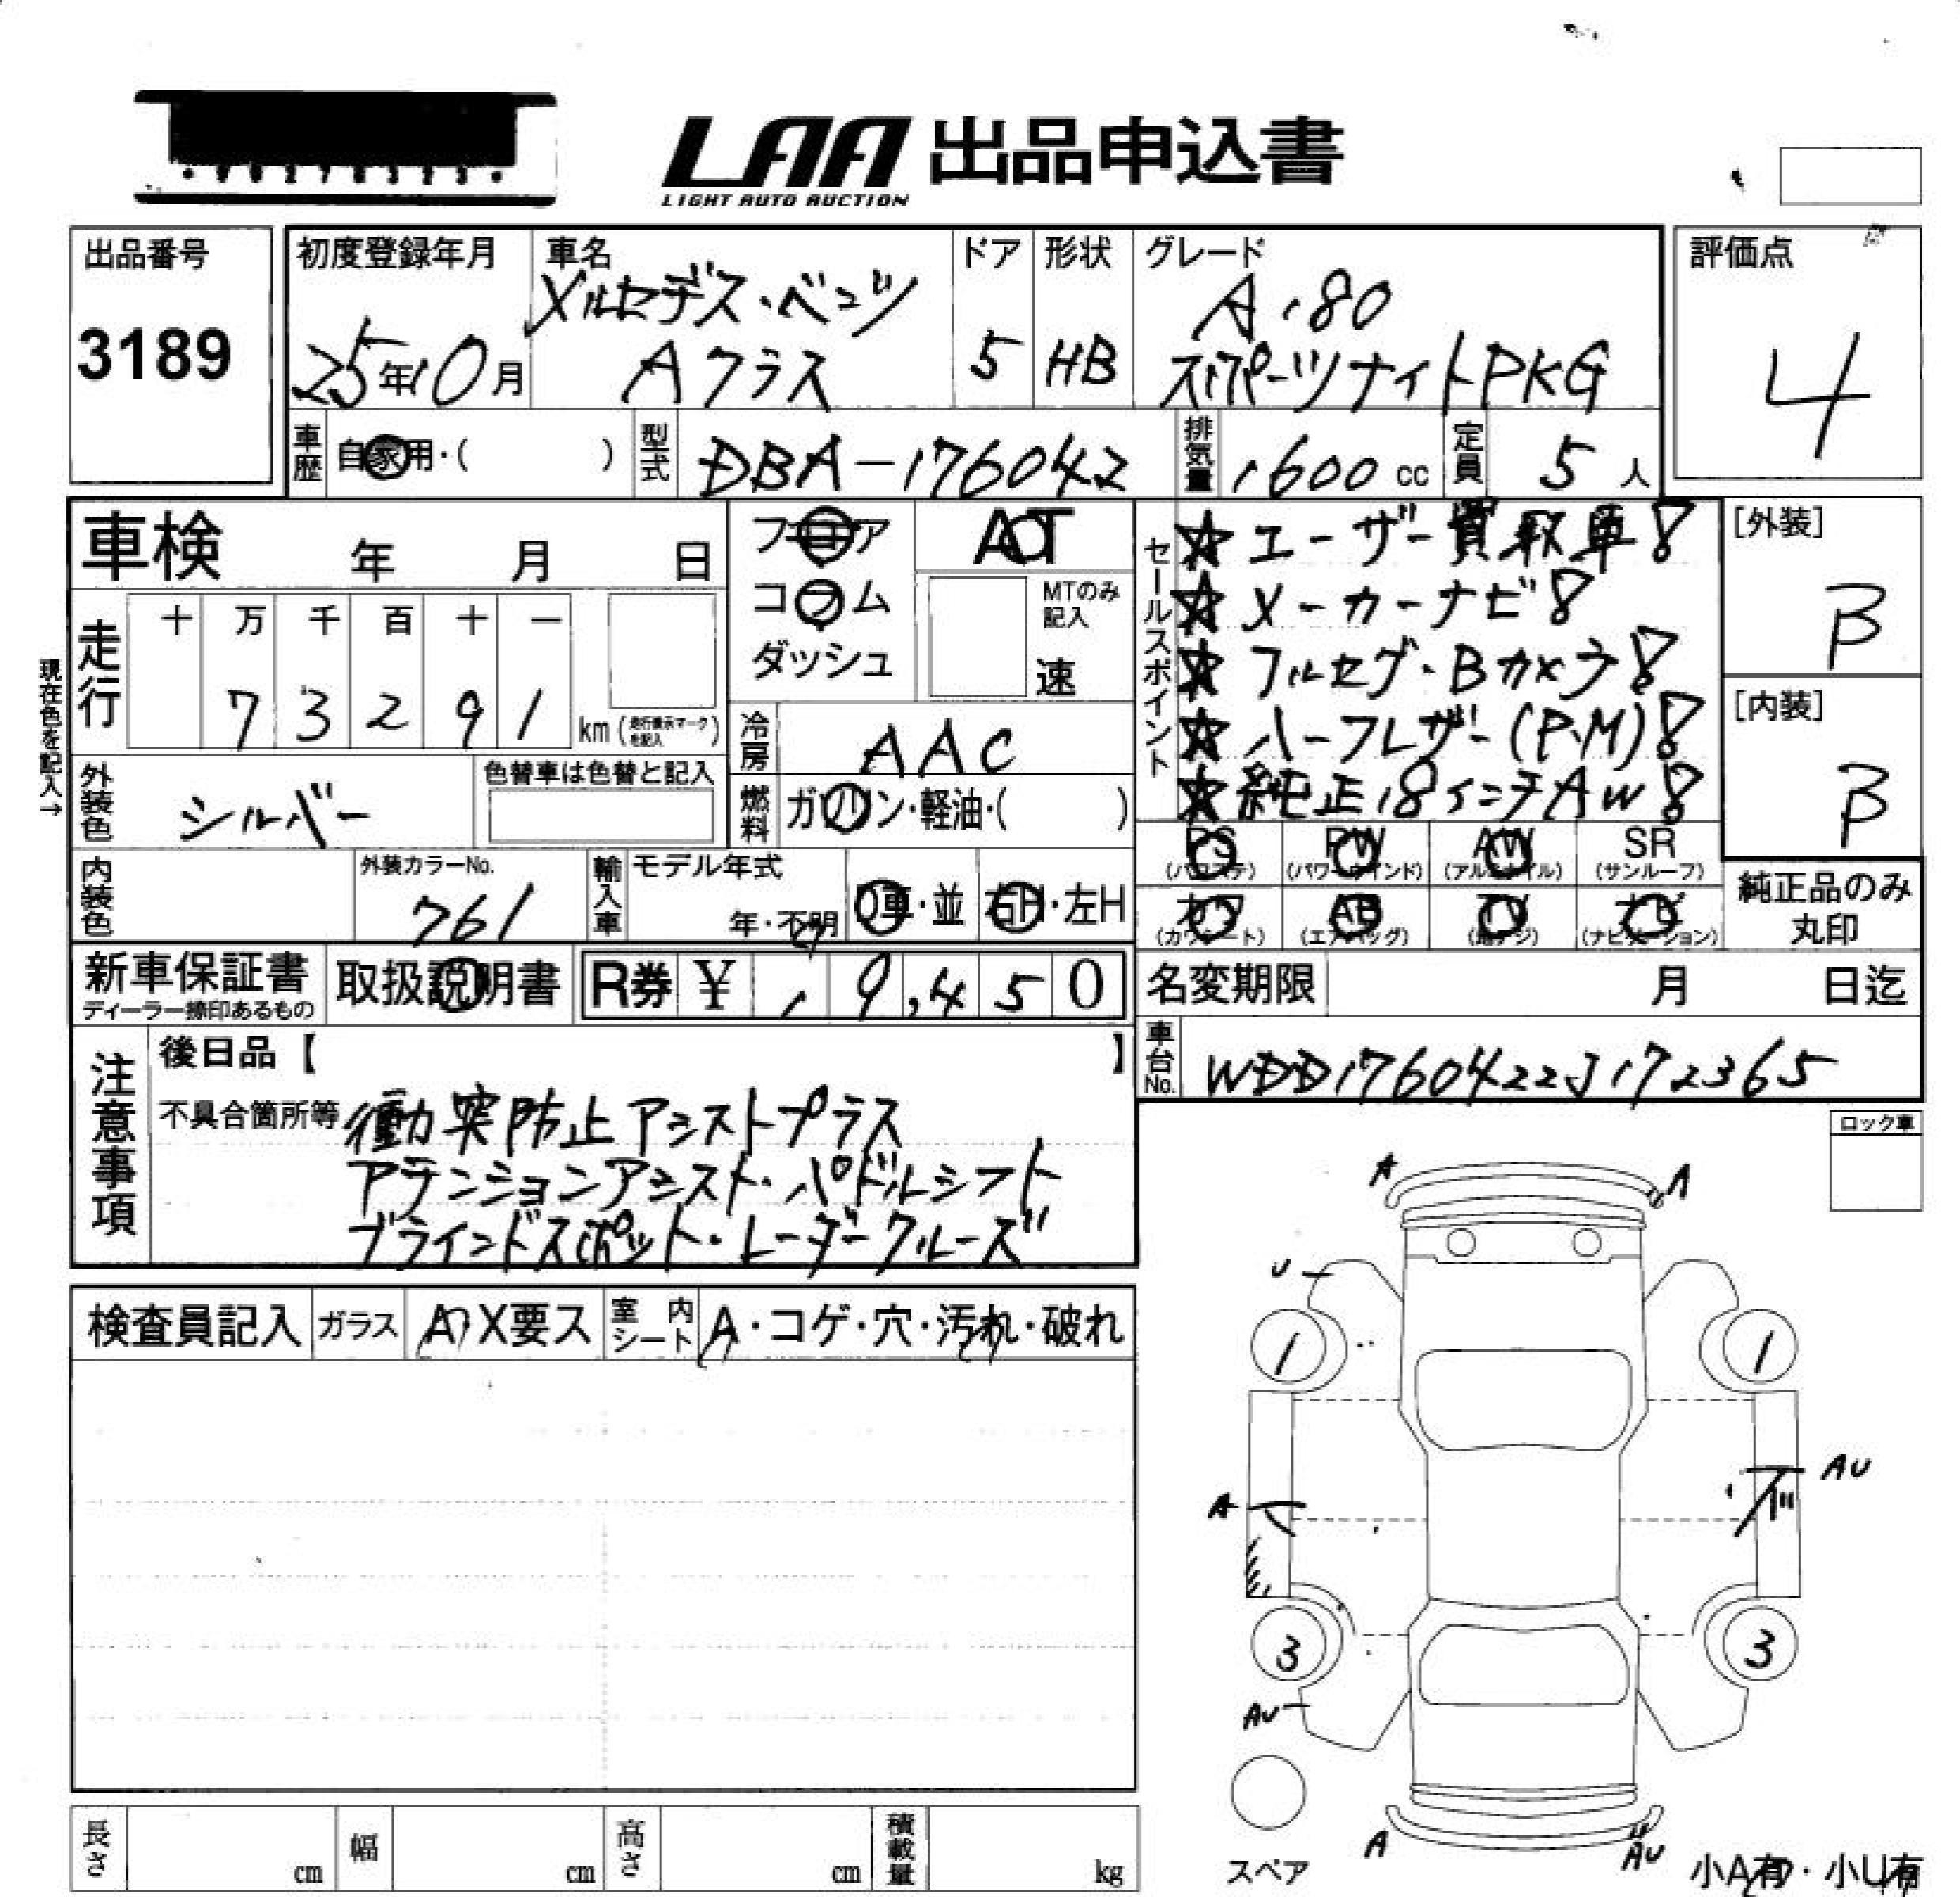 LAA 出品申込書
LIGHT AUTO AUCTION
出品番号
3189
初度登録年月
25年10月
車名
メルセデス・ベンツ
Aクラス
ドア
5
形状
HB
グレード
A180
スポーツナイトPKG
評価点
4
車歴
自家用・( )
型式
DBA-176042
排気量
1600 cc
定員
5 人
車検 年 月 日
フロア
コラム
ダッシュ
AT
MTのみ
記入
速
セールスポイント
☆ユーザー買取車!
☆メーカーナビ!
☆フルセグ・Bカメラ!
☆ハーフレザー(P.M)!
☆純正18インチAW!
[外装]
B
[内装]
B
現在色を記入→
走行
十 万 千 百 十 一
7 3 2 9 1
km (走行表示マークを記入)
冷房
AAC
外装色
シルバー
色替車は色替と記入
燃料
ガソリン・軽油・( )
PS
(パワステ)
PW
(パワーウインド)
AW
(アルミホイル)
SR
(サンルーフ)
カワ
(カワシート)
AB
(エアバッグ)
TV
(地デジ)
ナビ
(ナビゲーション)
純正品のみ
丸印
内装色
外装カラーNo.
761
輸入車
モデル年式
年・不明
D車・並
右H・左H
新車保証書
ディーラー捺印あるもの
取扱説明書
R券 ¥ 1 9,4 5 0
名変期限 月 日迄
車台No.
WDD1760422J172365
注意事項
後日品【 】
不具合箇所等
衝突防止アシストプラス
アテンションアシスト・パドルシフト
ブラインドスポット・レーダークルーズ
ロック車
検査員記入
ガラス
A X要ス
室内シート
A・コゲ・穴・汚れ・破れ
A
A
U
1
1
A
AU
3
3
AU
A
AU
スペア
小A有・小U有
長さ cm
幅 cm
高さ cm
積載量 kg